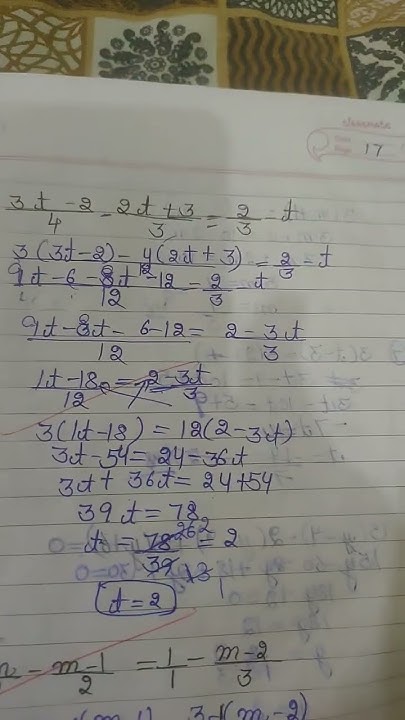 classmate
Date
Page 17
3t - 2 / 4 - 2t + 3 / 3 = 2/3 - t
3(3t-2) - 4(2t+3) / 12 = 2/3 - t
9t-6-8t-12 / 12 = 2/3 - t
9t-8t-6-12 / 12 = 2-3t / 3
1t-18 / 12 = 2-3t / 3
3(1t-18) = 12(2-3t)
3t-54=24=36t
3t+36t=24+54
39t=78
t = 78 / 39 = 2
t=2
- m-1 / 2 = 1/1 - m-2 / 3